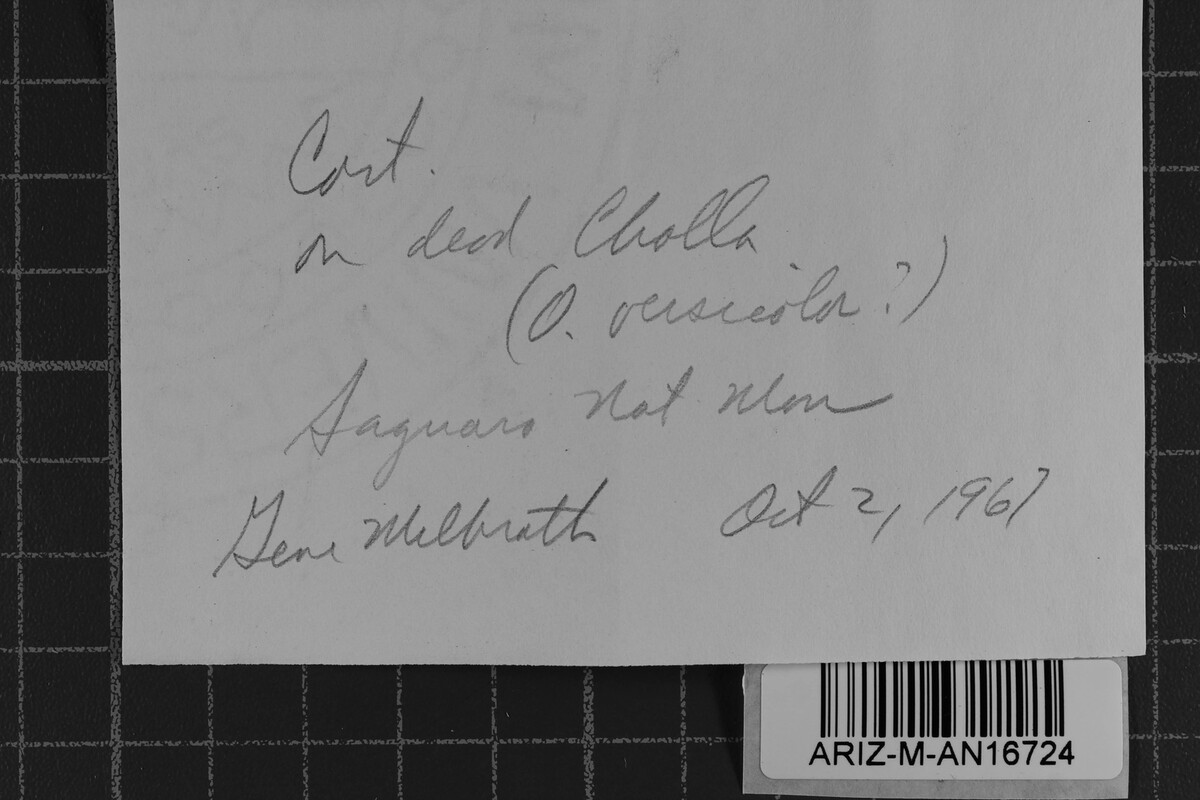 Cort.
on dead Cholla
(O. versicolor?)
Saguaro Nat Mon
Gene Milbrath Oct 2, 1967
ARIZ-M-AN16724